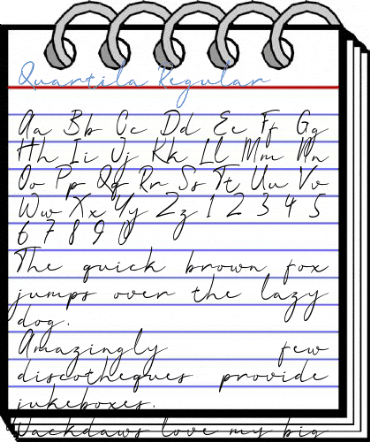 Quartila Regular
Aa Bb Cc Dd Ee Ff Gg
Hh Ii Jj Kk Ll Mm Nn
Oo Pp Qq Rr Ss Tt Uu Vv
Ww Xx Yy Zz 1 2 3 4 5
6 7 8 9 0
The quick brown fox
jumps over the lazy
dog.
Amazingly few
discotheques provide
jukeboxes.
Jackdaws love my big